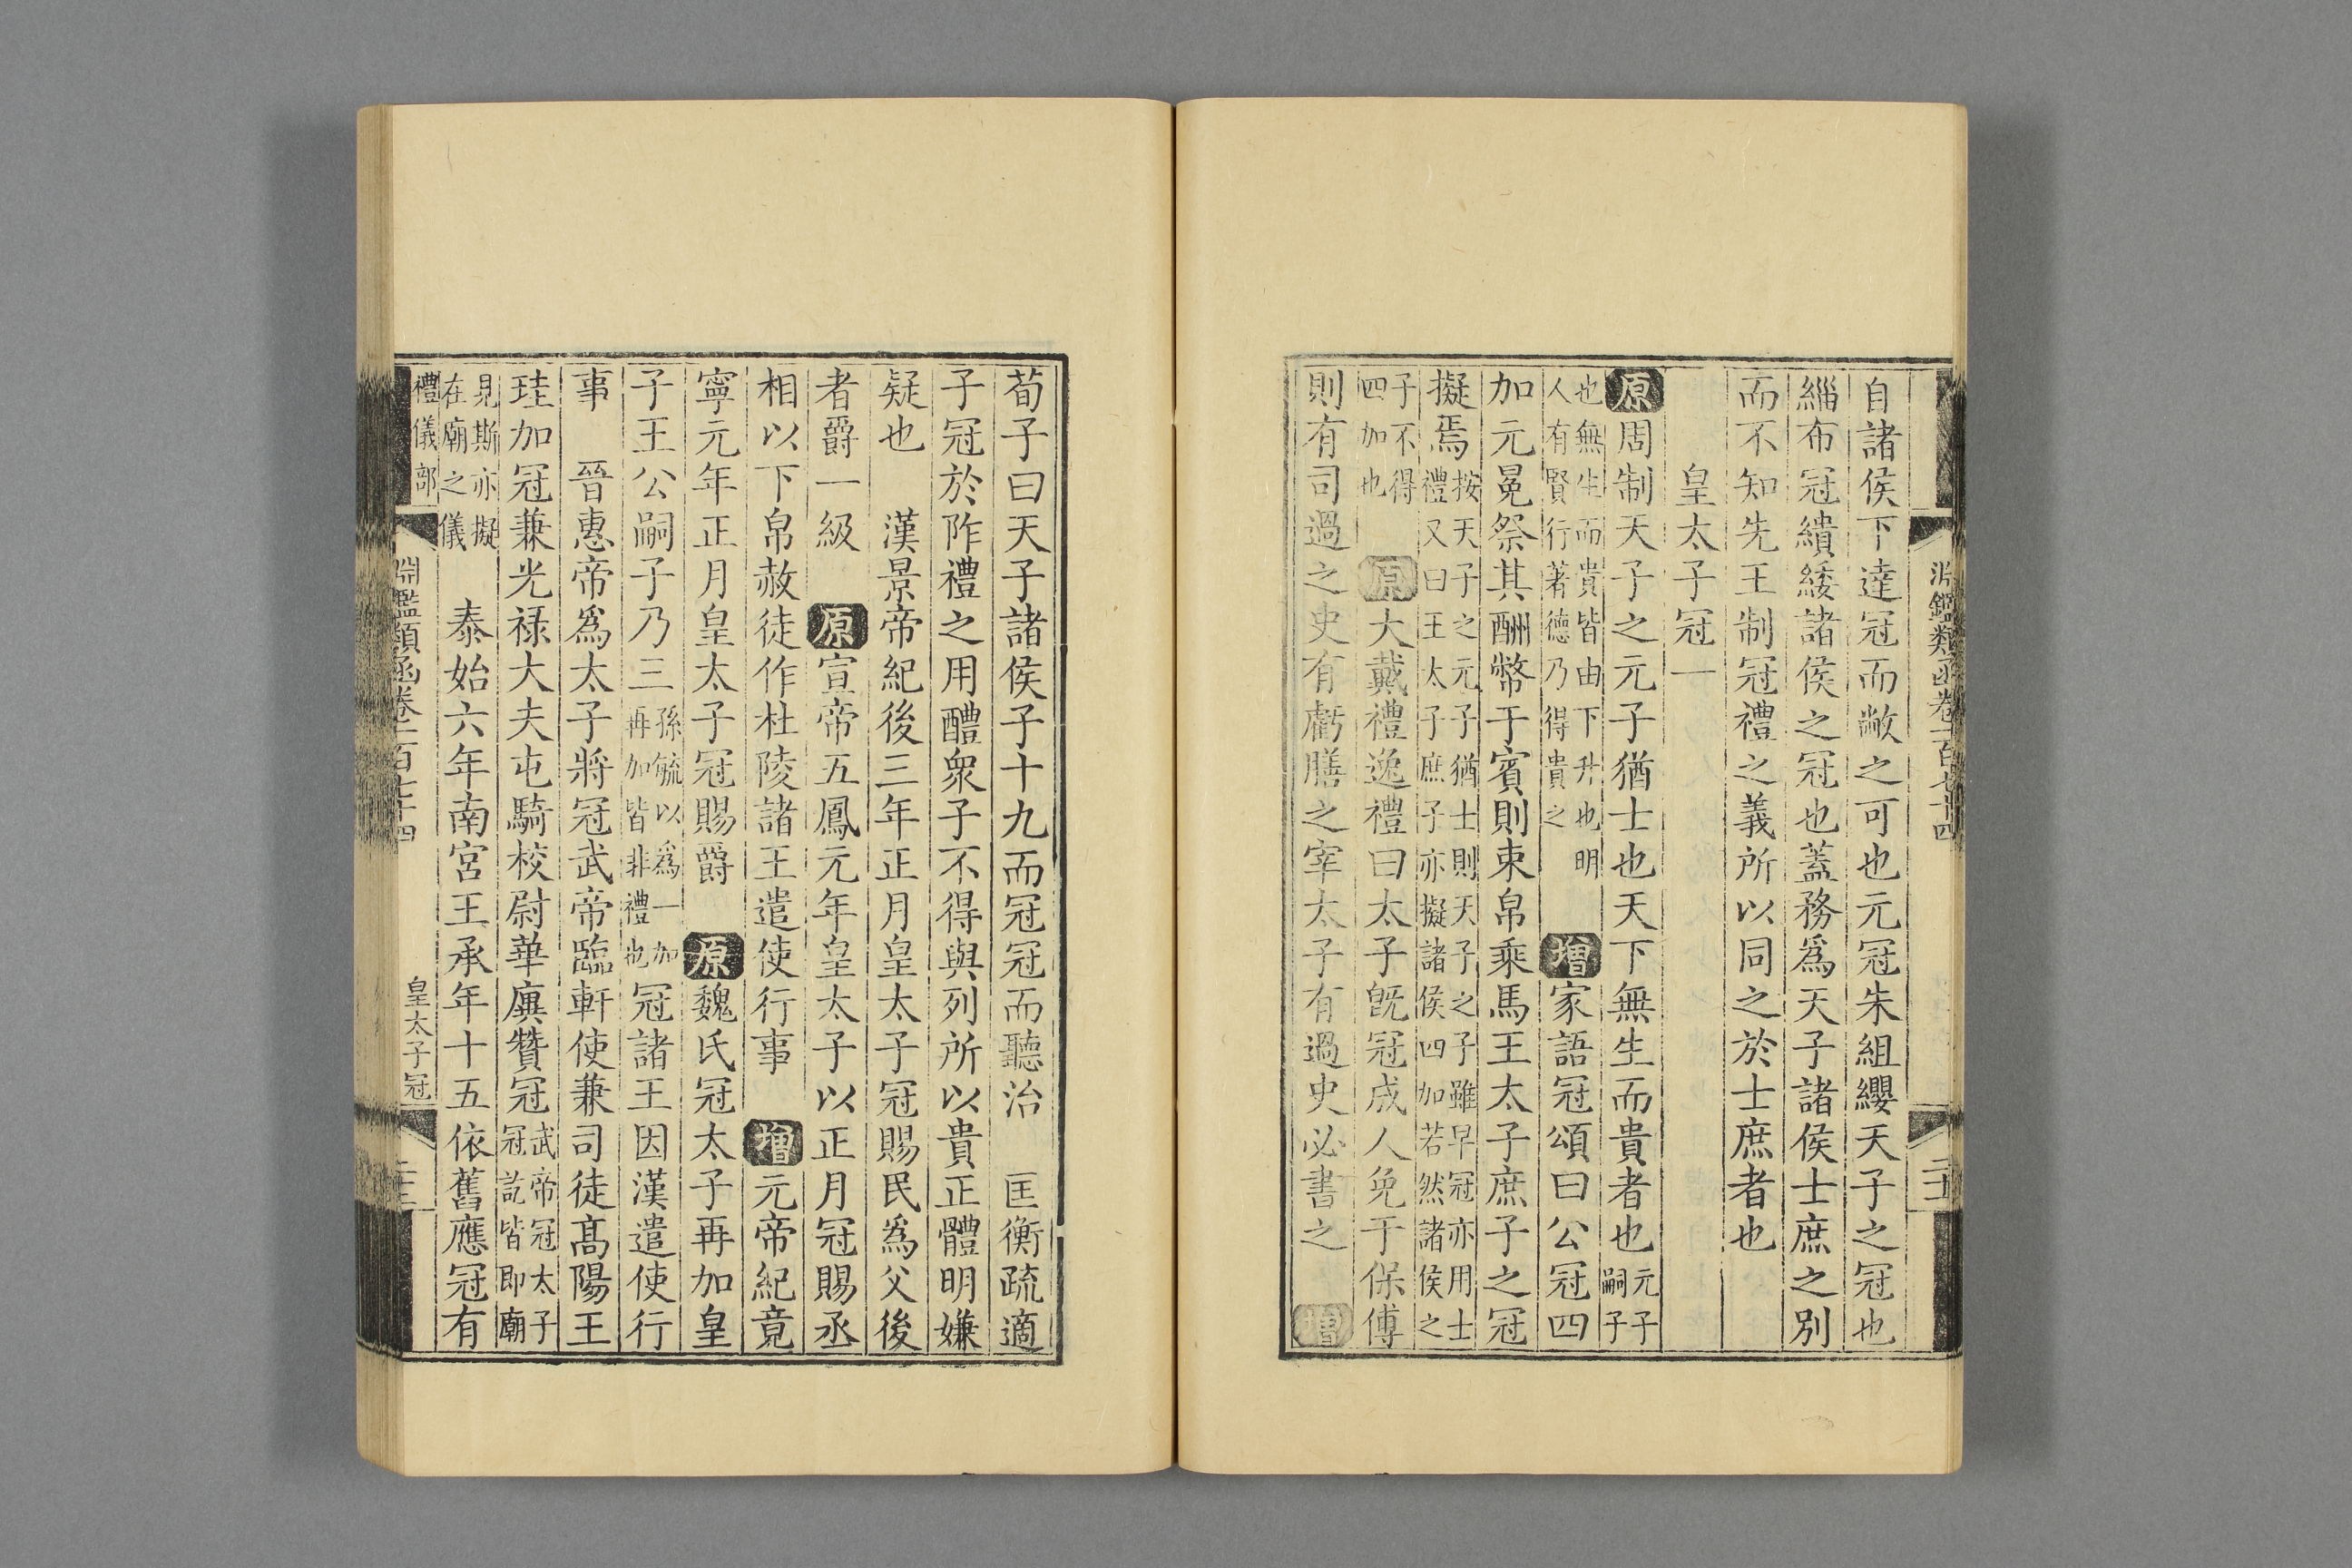 淵鑑類函卷一百七十四
自諸侯下達冠而敝之可也元冠朱組纓天子之冠也
緇布冠繢緌諸侯之冠也蓋務爲天子諸侯士庶之別
而不知先王制冠禮之義所以同之於士庶者也
皇太子冠一
原周制天子之元子猶士也天下無生而貴者也元子嗣子
也無生而貴皆由下升也明人有賢行著德乃得貴之增家語冠頌曰公冠四
加元冕祭其酬幣于賓則束帛乘馬王太子庶子之冠
擬焉按天子之元子猶士則天子之子雖早冠亦用士禮又曰王太子庶子亦擬諸侯四加若然諸侯之
子不得四加也原大戴禮逸禮曰太子旣冠成人免于保傅
則有司過之史有虧膳之宰太子有過史必書之增
荀子曰天子諸侯子十九而冠冠而聽治 匡衡疏適
子冠於阼禮之用醴衆子不得與列所以貴正體明嫌
疑也 漢景帝紀後三年正月皇太子冠賜民爲父後
者爵一級原宣帝五鳳元年皇太子以正月冠賜丞
相以下帛赦徒作杜陵諸王遣使行事增元帝紀竟
寧元年正月皇太子冠賜爵原魏氏冠太子再加皇
子王公嗣子乃三孫毓以爲一加再加皆非禮也冠諸王因漢遣使行
事 晉惠帝爲太子將冠武帝臨軒使兼司徒高陽王
珪加冠兼光祿大夫屯騎校尉華廙贊冠武帝冠太子冠訖皆即廟
見斯亦擬在廟之儀 泰始六年南宮王承年十五依舊應冠有
禮儀部 淵鑑類函卷一百七十四 皇太子冠